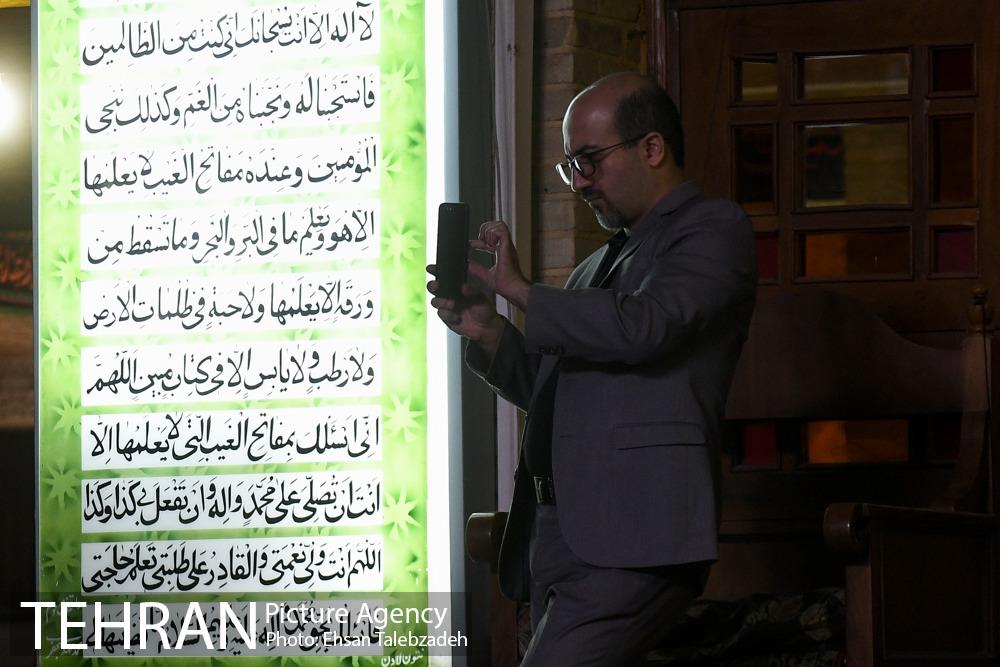 لا اله الا انت سبحانك انی كنت من الظالمین
فاستجبنا له و نجیناه من الغم وكذلك ننجی
المؤمنین وعنده مفاتح الغیب لا یعلمها
الا هو ویعلم ما فی البر والبحر وما تسقط من
ورقة الا یعلمها ولا حبة فی ظلمات الارض
ولا رطب ولا یابس الا فی كتاب مبین اللهم
انی اسئلك بمفاتح الغیب التی لا یعلمها الا
انت ان تصلی علی محمد واله وان تفعل بی كذا وكذا
اللهم انت ولی نعمتی والقادر علی طلبتی تعلم حاجتی
TEHRAN Picture Agency
Photo: Ehsan Talebzadeh